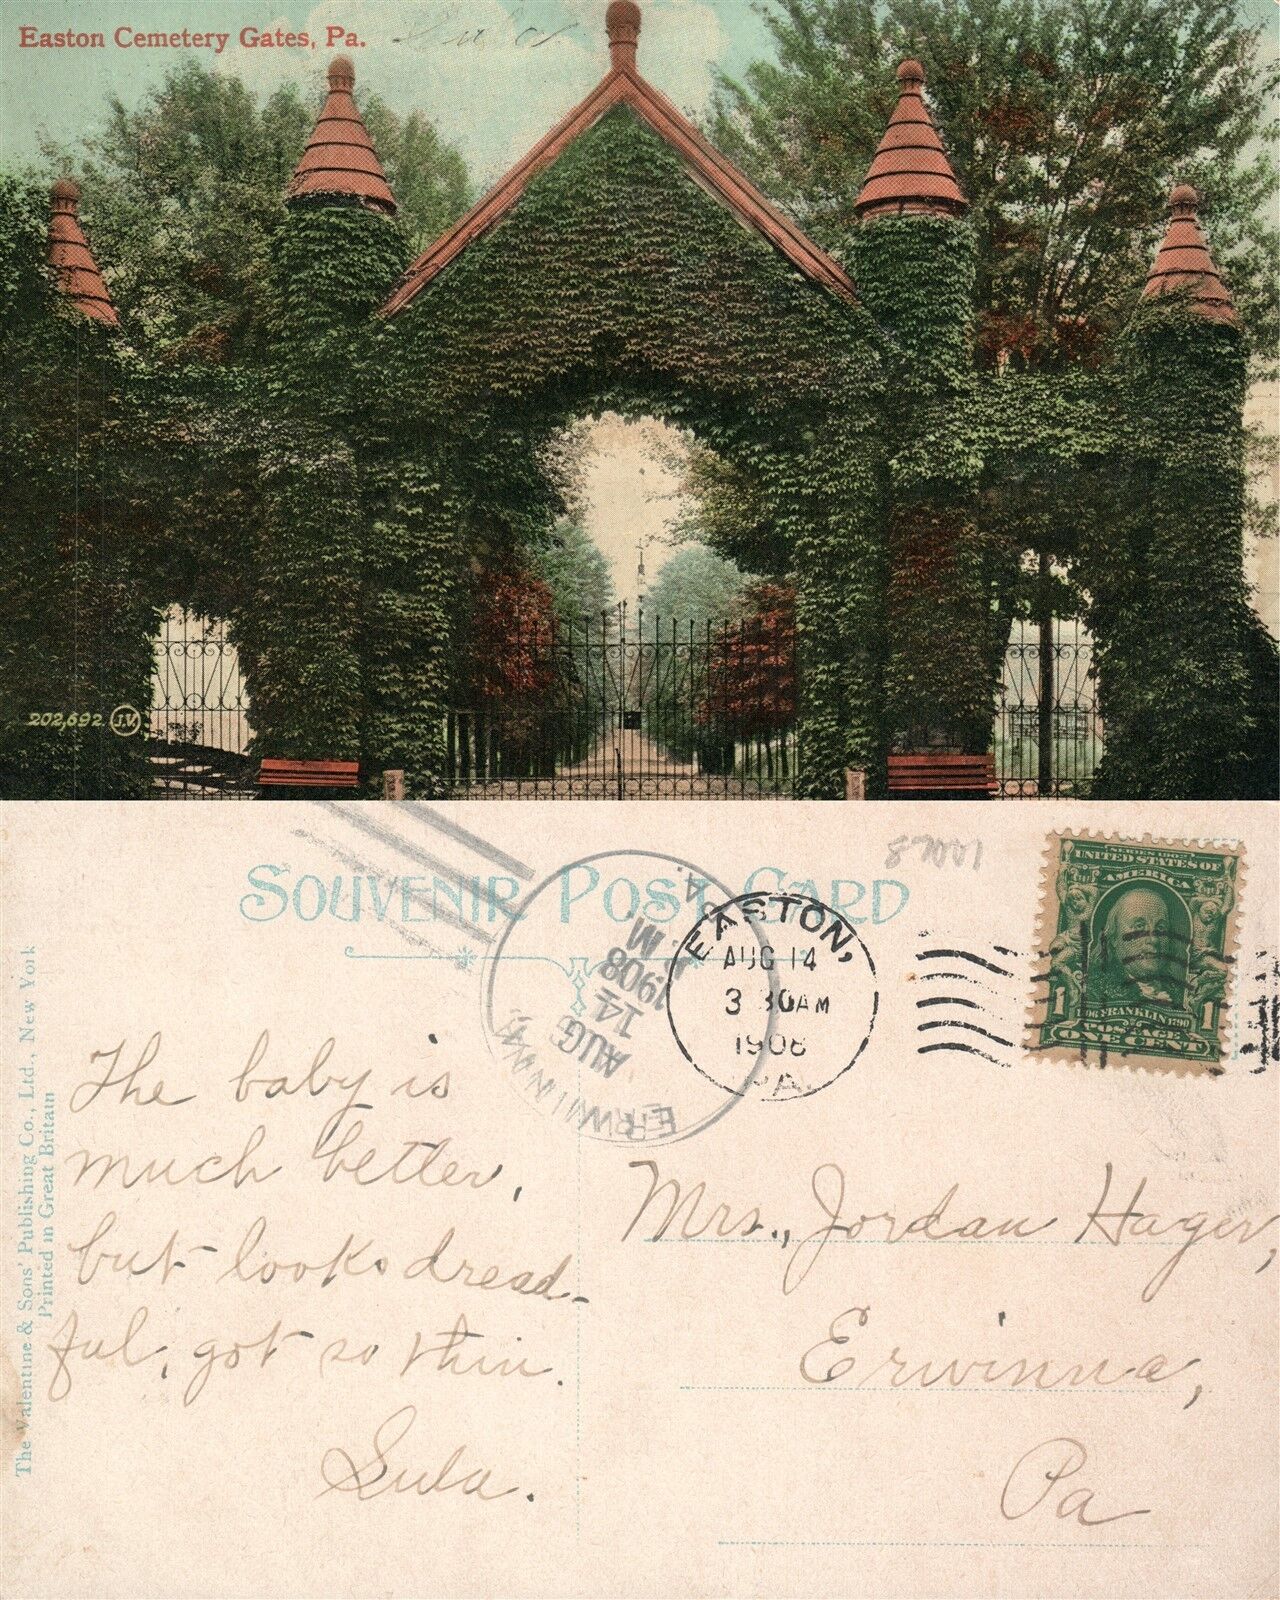 Easton Cemetery Gates, Pa.
202,692 J.V.
SOUVENIR POST CARD
EASTON,
AUG 14
3 30 AM
1908
PA.
ERWINNA
AUG
14
1908
M
SERIES 1902
UNITED STATES OF
AMERICA
1 FRANKLIN 1790 1
POSTAGE
ONE CENT
The Valentine & Sons' Publishing Co., Ltd., New York
Printed in Great Britain
The baby is
much better,
but looks dread-
ful, got so thin.
Lula.
Mrs., Jordan Hager,
Erwinna,
Pa